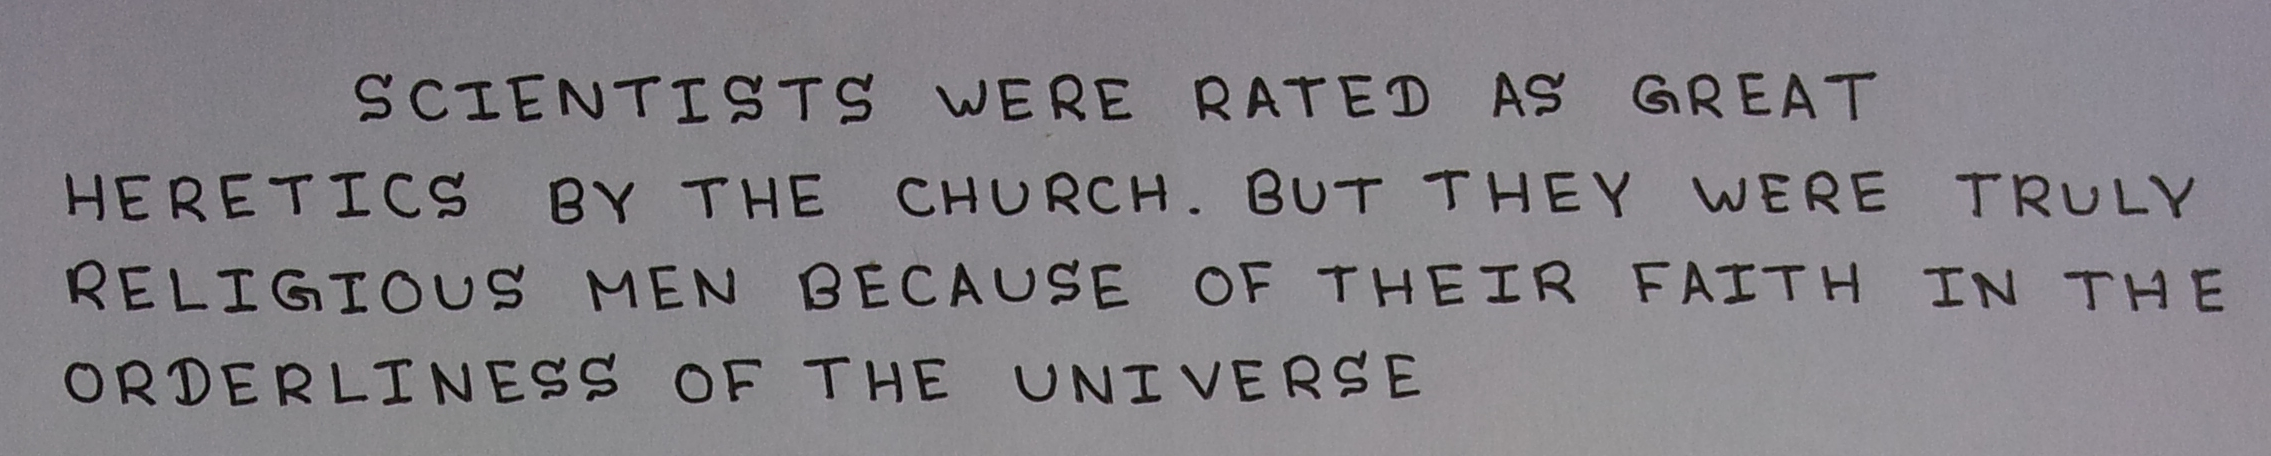 SCIENTISTS WERE RATED AS GREAT
HERETICS BY THE CHURCH. BUT THEY WERE TRULY
RELIGIOUS MEN BECAUSE OF THEIR FAITH IN THE
ORDERLINESS OF THE UNIVERSE